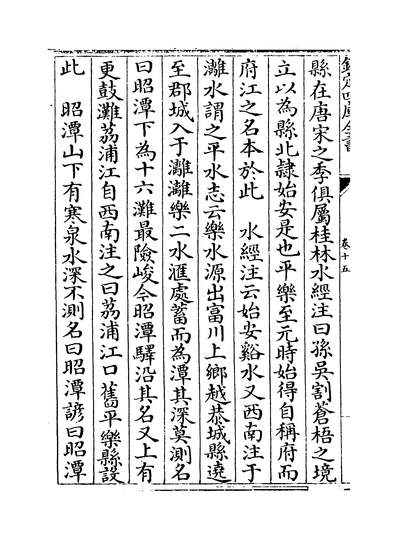 欽定四庫全書
卷十五
縣在唐宋之季俱屬桂林水經注曰孫吳割蒼梧之境
立以為縣北隷始安是也平樂至元時始得自稱府而
府江之名本於此 水經注云始安谿水又西南注于
灕水謂之平水志云樂水源出富川上鄉越恭城縣遶
至郡城入于灕灕樂二水滙處蓄而為潭其深莫測名
曰昭潭下為十六灘最險峻今昭潭驛沿其名又上有
更鼓灘荔浦江自西南注之曰荔浦江口 舊平樂縣設
此 昭潭山下有寒泉水深不測名曰昭潭諺曰昭潭